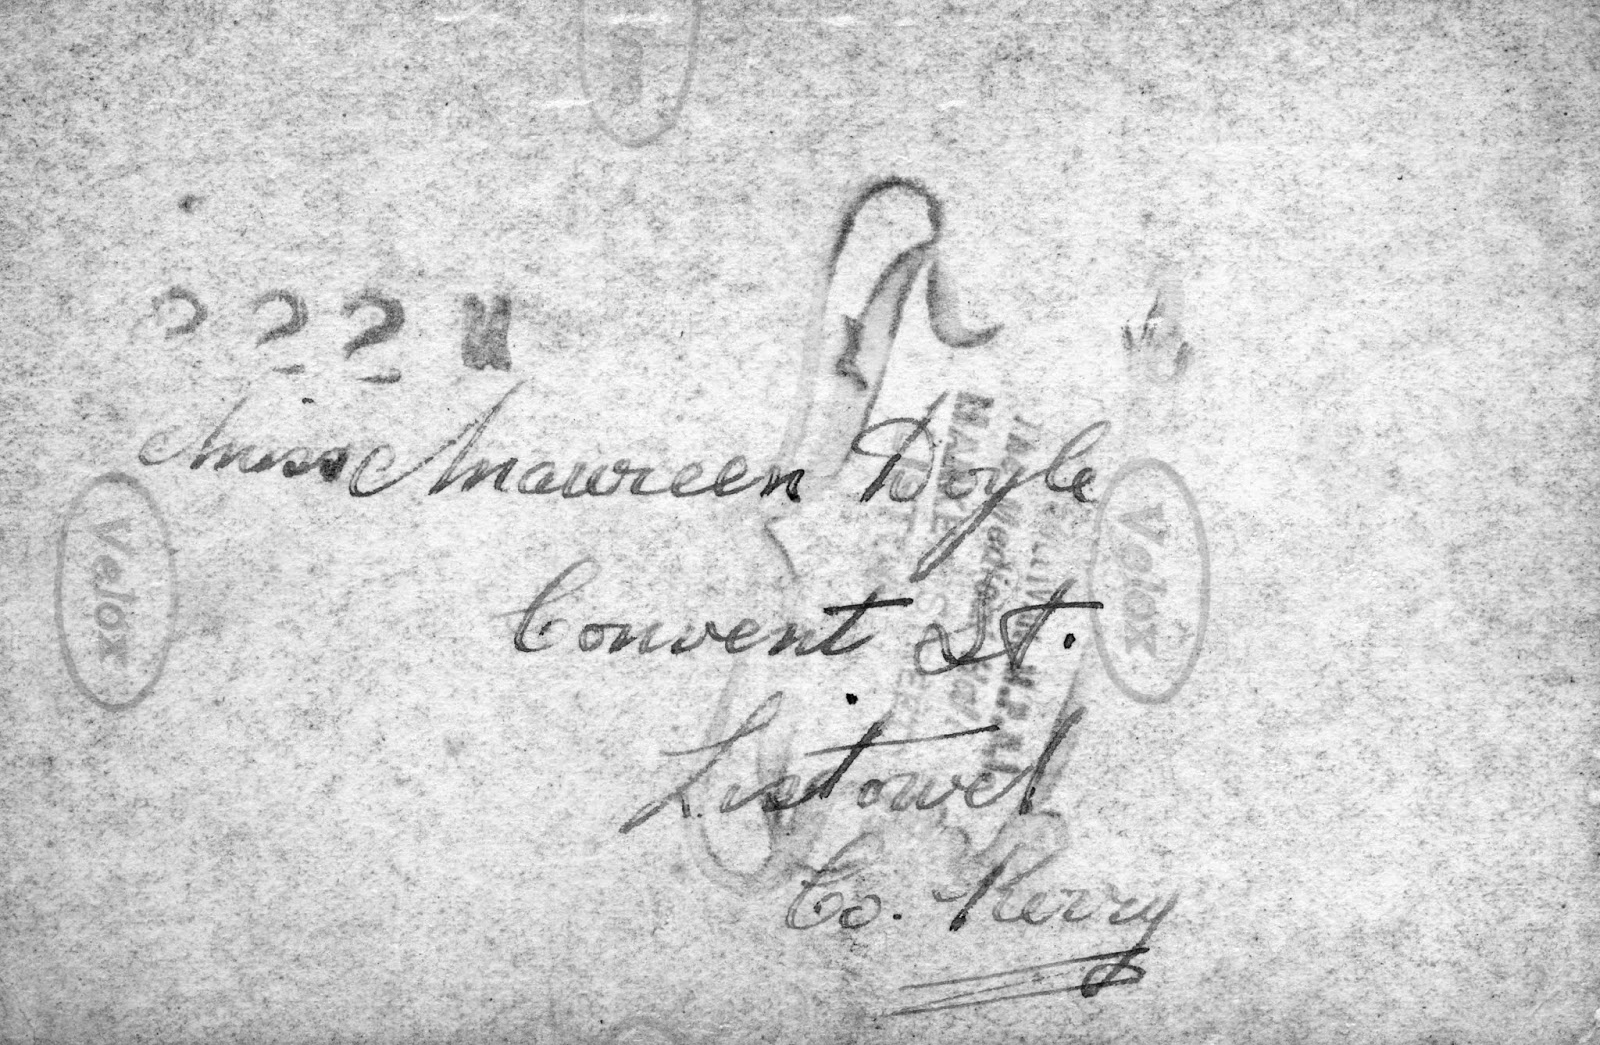 222
Miss Maureen Doyle
Convent St.
Listowel
Co. Kerry
Velox
Velox